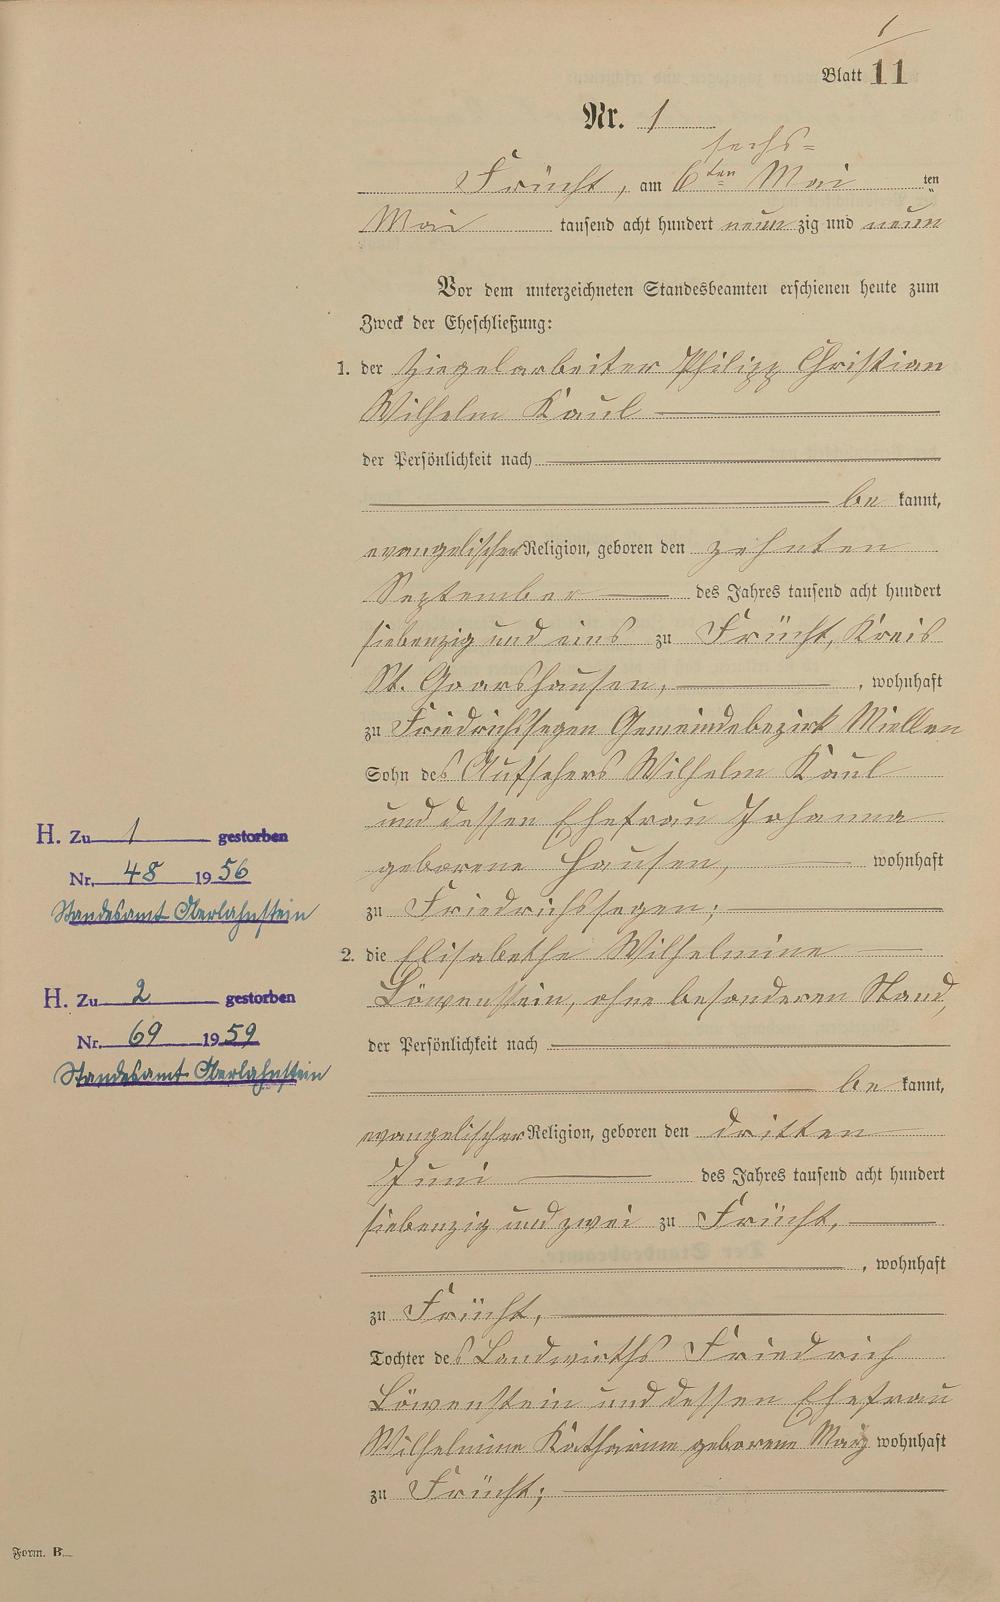 1
Blatt 11
Nr. 1
sechs=
Frücht, am 6ten Mai ten
Mai tausend acht hundert neunzig und neun
Vor dem unterzeichneten Standesbeamten erschienen heute zum
Zweck der Eheschließung:
1. der Ziegelarbeiter Philipp Christian
Wilhelm Kaul
der Persönlichkeit nach
be kannt,
evangelischer Religion, geboren den zehnten
September des Jahres tausend acht hundert
siebenzig und eins zu Frücht, Kreis
St. Goarshausen, , wohnhaft
zu Friedrichssegen Gemeindebezirk Miellen
Sohn des Aufsehers Wilhelm Kaul
und dessen Ehefrau Johanna
geborene Hausen, wohnhaft
zu Friedrichssegen;
2. die Elisabethe Wilhelmine
Löwenstein, ohne besonderen Stand,
der Persönlichkeit nach
be kannt,
evangelischer Religion, geboren den dritten
Juni des Jahres tausend acht hundert
siebenzig und zwei zu Frücht,
, wohnhaft
zu Frücht,
Tochter des Landwirths Friedrich
Löwenstein und dessen Ehefrau
Wilhelmine Katharine geborene wohnhaft
zu Frücht;
H. Zu 1 gestorben
Nr. 48 1956
Standesamt Oberlahnstein
H. Zu 2 gestorben
Nr. 69 1959
Standesamt Oberlahnstein
Form. B.